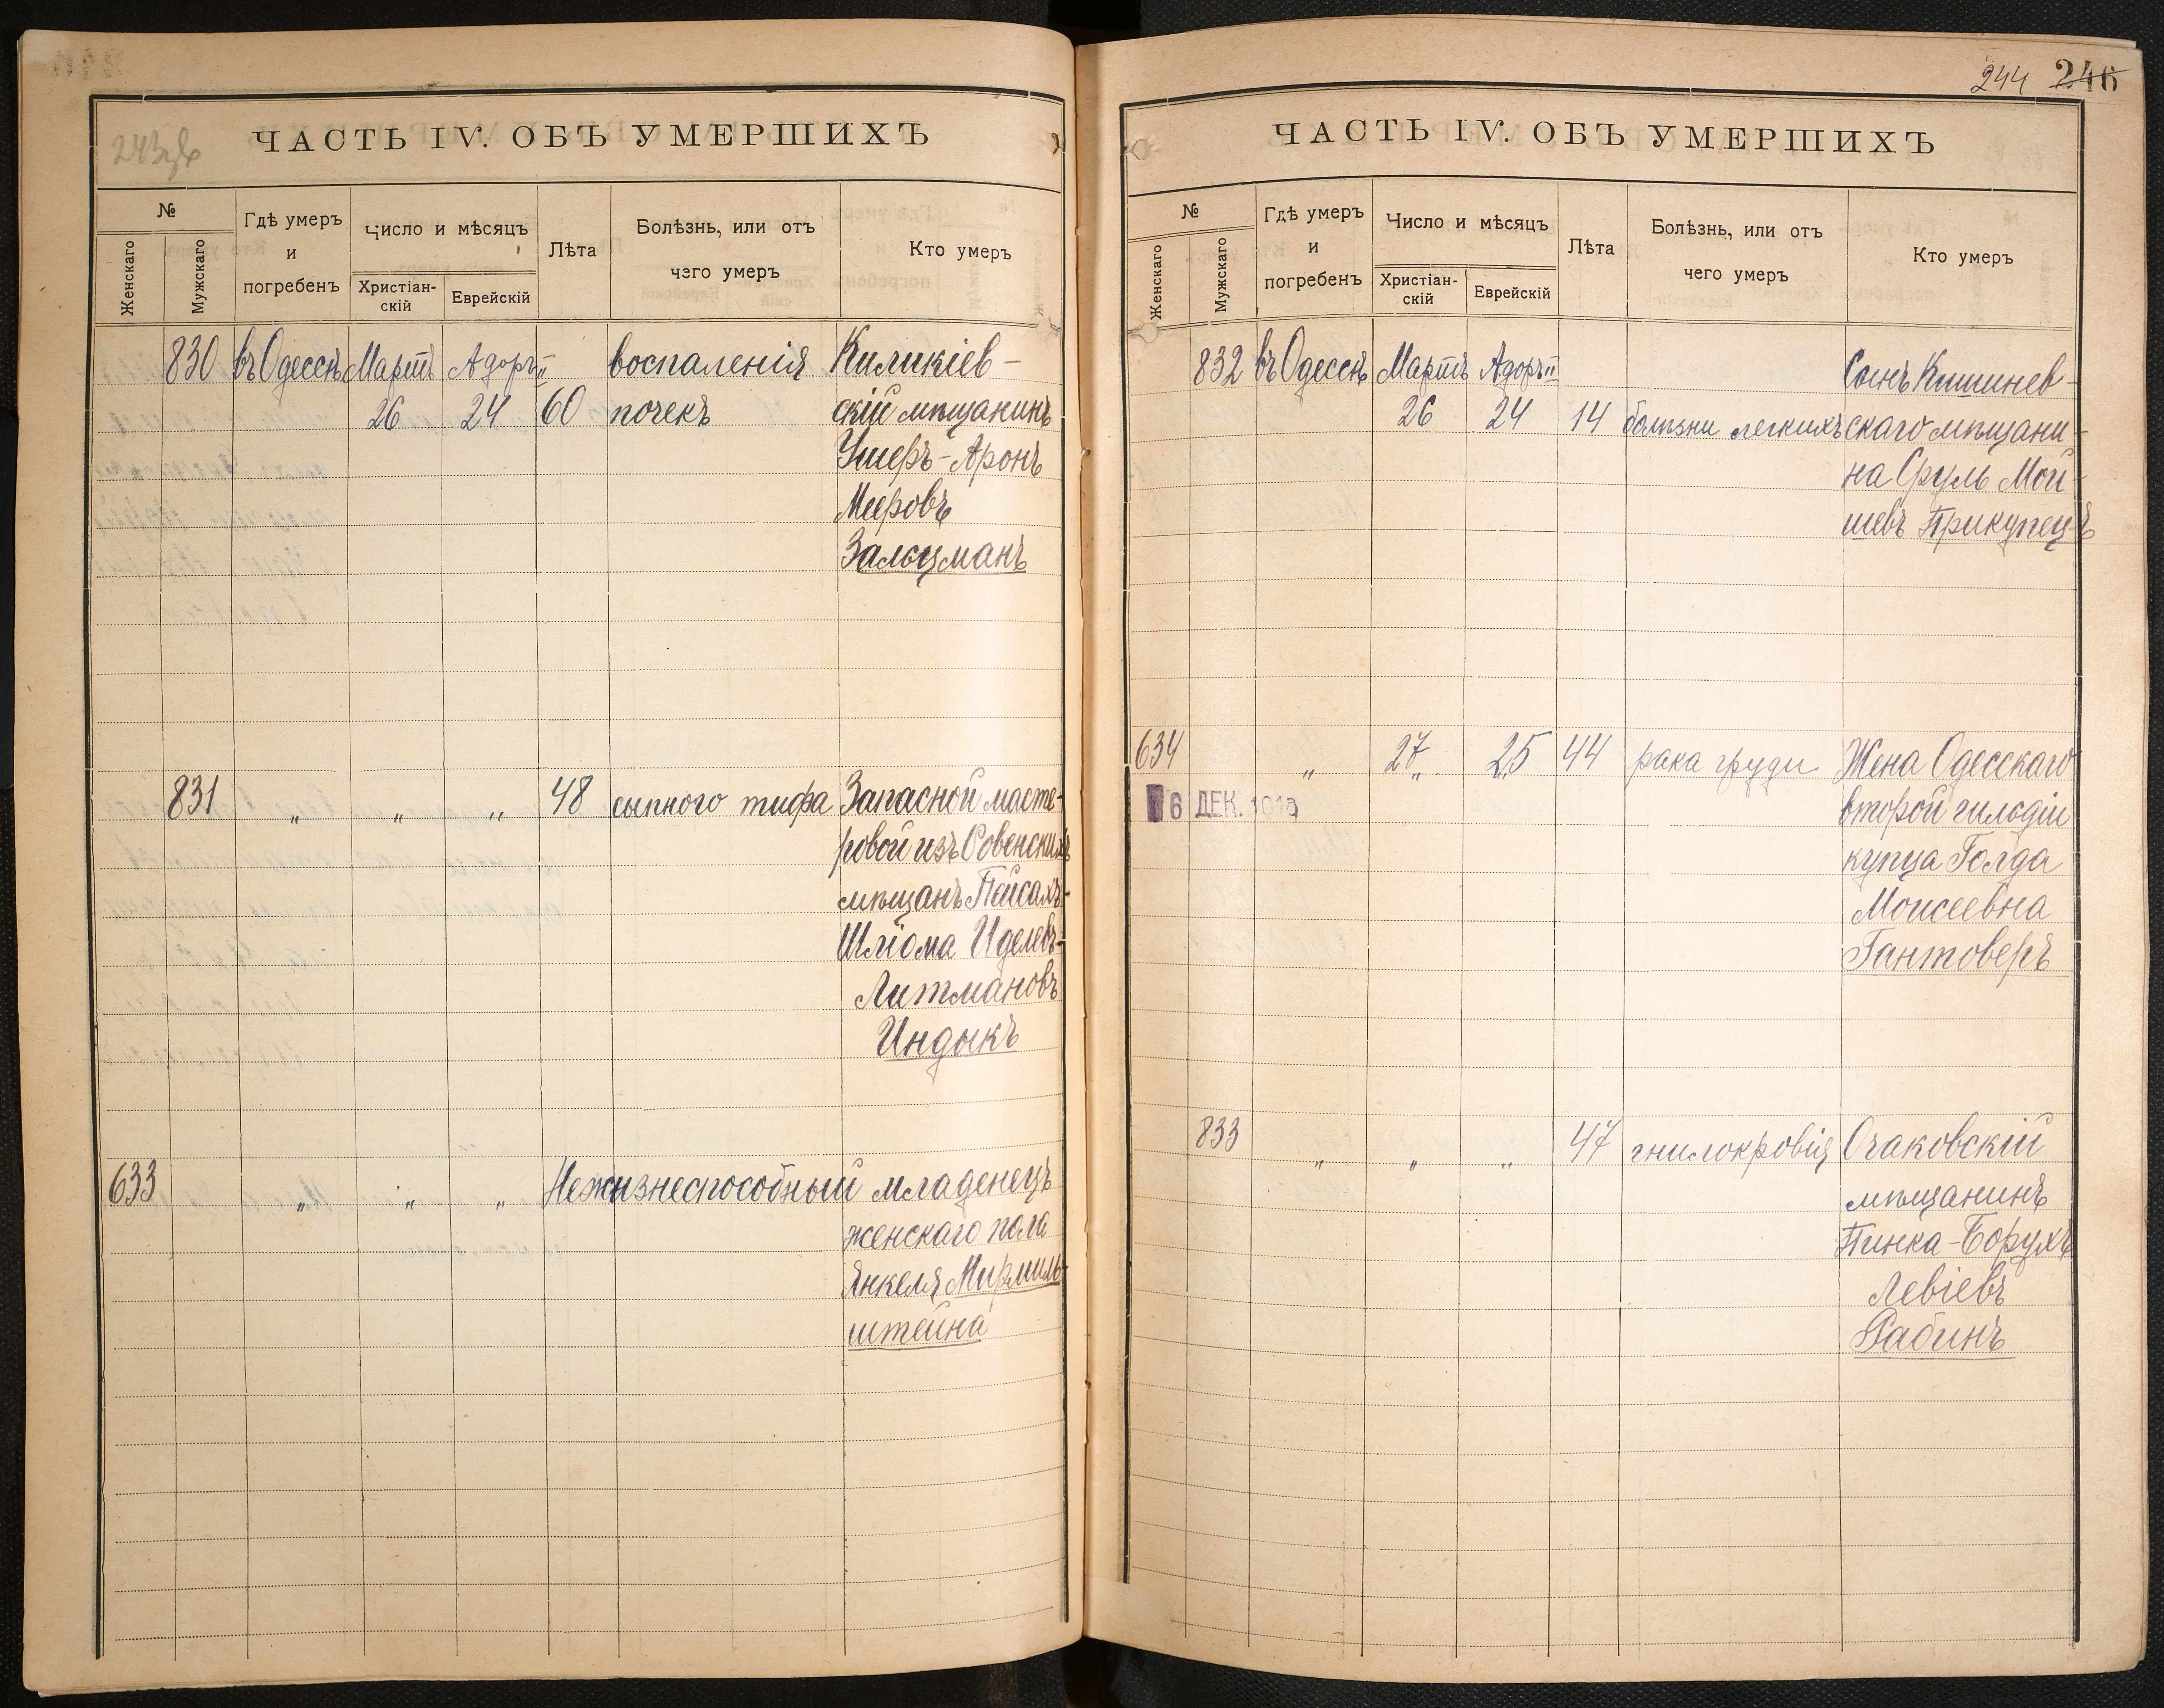 243об
ЧАСТЬ IV. ОБЪ УМЕРШИХЪ
№
Женскаго
Мужскаго
Гдѣ умеръ
и
погребенъ
Число и мѣсяцъ
Христіан-
скій
Еврейскій
Лѣта
Болѣзнь, или отъ
чего умеръ
Кто умеръ
830 въ Одессѣ Мартъ Адоръ II воспаленія Киликіев-
26 24 60 почекъ скій мѣщанинъ
Ушеръ-Аронъ
Мееровъ
Зальцманъ
831 „ „ „ 48 сыпного тифа Запасной масте-
ровой изъ Ровенскихъ
мѣщанъ Пейсахъ-
Шлiома Иделевъ-
Литмановъ
Индыкъ
633 „ „ „ Нежизнеспособный младенецъ
женскаго пола
Янкеля Мирмиль-
штейна
244 246
ЧАСТЬ IV. ОБЪ УМЕРШИХЪ
№
Женскаго
Мужскаго
Гдѣ умеръ
и
погребенъ
Число и мѣсяцъ
Христіан-
скій
Еврейскій
Лѣта
Болѣзнь, или отъ
чего умеръ
Кто умеръ
832 въ Одессѣ Мартъ Адоръ II Сынъ Кишинев-
26 24 14 болѣзни легкихъ скаго мѣщани-
на Сруль Мой-
шевъ Прикупецъ
634 „ 27 25 44 рака груди Жена Одесскаго
6 ДЕК. второй гильдіи
купца Голда
Моисеевна
Гантоверъ
833 „ „ „ 47 гнилокровія Очаковскій
мѣщанинъ
Пинка-Борухъ
Левіевъ
Рабинъ